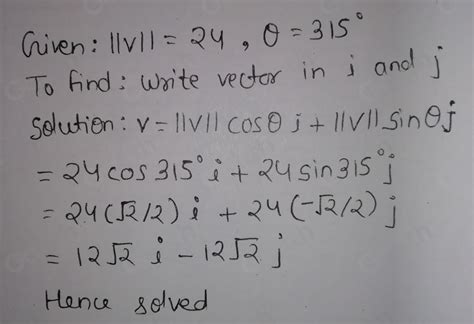 Given: ||v|| = 24, θ = 315°
To find: write vector in i and j
Solution: v = ||v|| cosθ i + ||v|| sinθ j
= 24 cos 315° i + 24 sin 315° j
= 24(√2/2) i + 24(-√2/2) j
= 12√2 i - 12√2 j
Hence solved